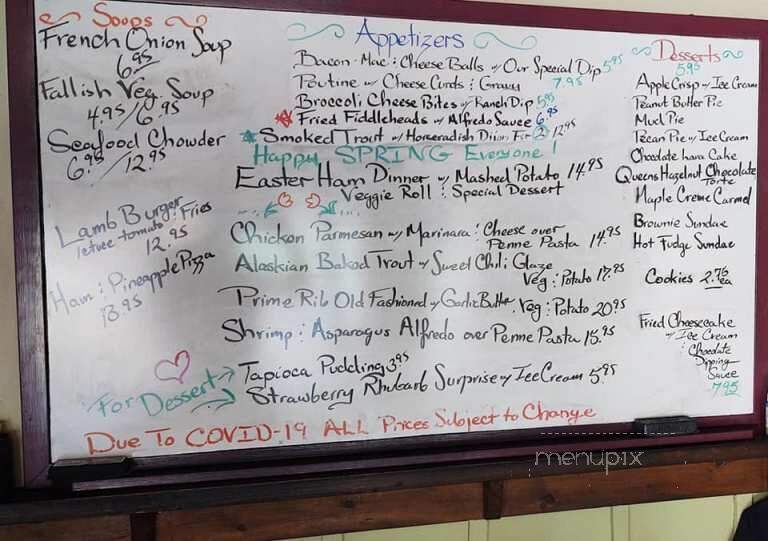 Soops
French Onion Soup
6.95
Fallish Veg. Soup
4.95/6.95
Seafood Chowder
6.95/12.95
Lamb Burger
letuce tomato : Fries
12.95
Ham : Pineapple Pizza
13.95
Appetizers
Bacon - Mac : Cheese Balls w/ Our Special Dip 5.95
Poutine w/ Cheese Curds : Gravy 7.95
Broccoli Cheese Bites w/ Ranch Dip 5.95
Fried Fiddleheads w/ Alfredo Sauce 6.95
Smoked Trout w/ Horseradish Dijon For 2 12.95
Happy SPRING Everyone!
Easter Ham Dinner w/ Mashed Potato 14.95
Veggie Roll : Special Dessert
Chicken Parmesan w/ Marinara : Cheese over
Penne Pasta 14.95
Alaskian Baked Trout w/ Sweet Chili Glaze
Veg : Potato 17.95
Prime Rib Old Fashioned w/ Garlic Butter
Veg : Potato 20.95
Shrimp : Asparagus Alfredo over Penne Pasta 15.95
For Dessert
Tapioca Pudding 3.95
Strawberry Rhubarb Surprise w/ Ice Cream 5.95
Due To COVID-19 ALL Prices Subject to Change
Desserts
5.95
Apple Crisp w/ Ice Cream
Peanut Butter Pie
Mud Pie
Pecan Pie w/ Ice Cream
Chocolate Lava Cake
Queens Hazelnut Chocolate
Torte
Maple Creme Carmel
Brownie Sundae
Hot Fudge Sundae
Cookies 2.75 ea
Fried Cheesecake
w/ Ice Cream
: Chocolate
Dipping
Sauce
7.95
menupix